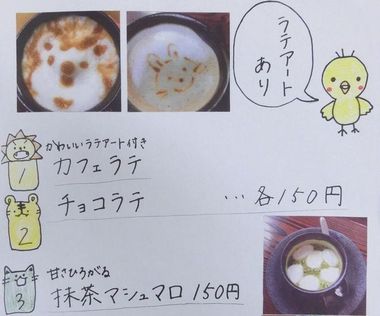 ラテアート
あり
かわいいラテアート付き
1 カフェラテ
2 チョコラテ …各150円
甘さひろがる
3 抹茶マシュマロ 150円